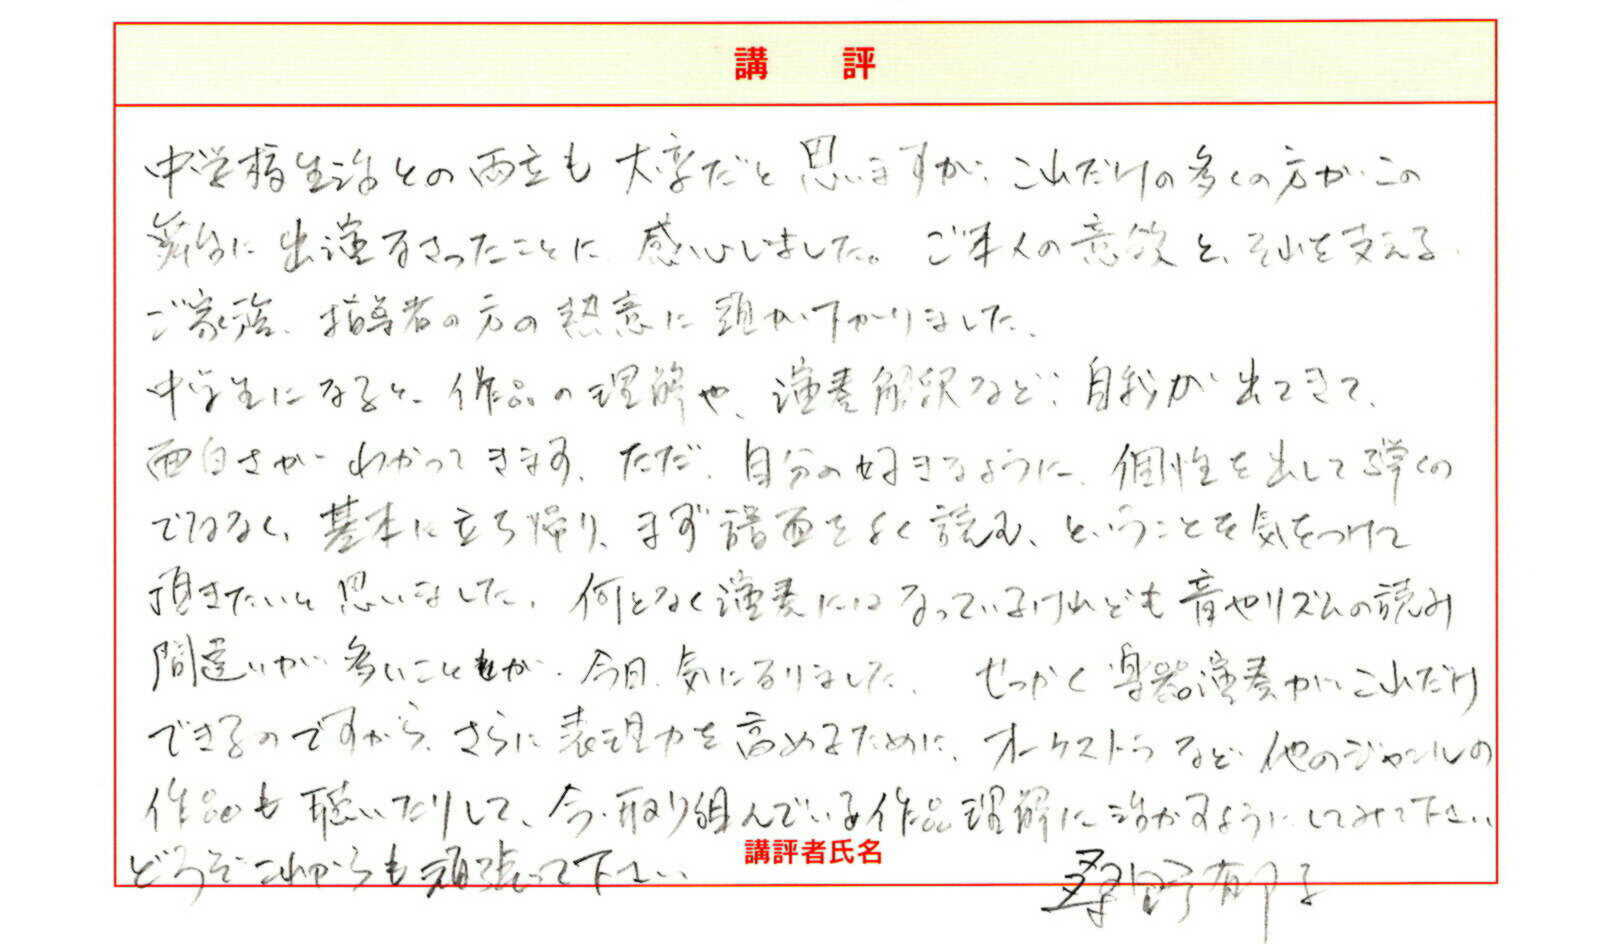 講 評
中学校生活との両立も大変だと思いますが、これだけの多くの方が、この
舞台に出演なさったことに、感心しました。ご本人の意欲と、それを支える
ご家族、指導者の方の熱意に頭が下がりました。
中学生になると、作品の理解や、演奏解釈など、自我が出てきて、
面白さがわかってきます。ただ、自分の好きなように、個性を出して弾くの
ではなく、基本に立ち帰り、まず譜面をよく読む、ということを気をつけて
頂きたいと思いました。何となく演奏にはなっているけれども音やリズムの読み
間違いが多いことが、今日、気になりました。せっかく楽器演奏がこれだけ
できるのですから、さらに表現力を高めるために、オーケストラなど他のジャンルの
作品も聴いたりして、今、取り組んでいる作品理解に活かすようにしてみて下さい
どうぞこれからも頑張って下さい。
講評者氏名
野有郁子